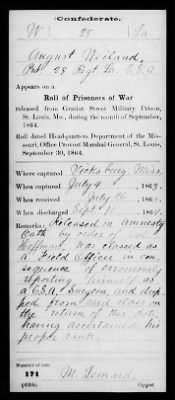 Confederate.
W 28 La
August Weiland
Pvt 28 Regt La. C.S.A.
Appears on a
Roll of Prisoners of War
released from Gratiot Street Military Prison,
St. Louis, Mo., during the month of September,
1864.
Roll dated Headquarters Department of the Mis-
souri, Office Provost Marshal General, St. Louis,
September 30, 1864.
Where captured Vicksburg, Miss.
When captured July 4, 1863.
When received July 1863.
When discharged Sept. 1864.
Remarks: Released on amnesty
Oath by order of Col.
Hoffman, was classed as
a Field Officer in con-
sequence of erroneously
reporting himself as
a C.S.A. Surgeon, and drop-
ped from said class on
the return of this date,
having ascertained his
proper rank.
Number of roll:
171
(635b) Copyist.